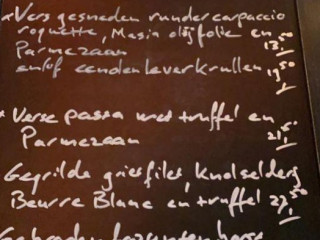 * Vers gesneden rundercarpaccio
roquette, Masia olijfolie en
Parmezaan 13,50
en/of eendenleverkrullen 19,50
* Verse pasta met truffel en
Parmezaan 21,50
Gegrilde grietfilet, Knolselderij
Beurre Blanc en truffel 27,50
Gebraden